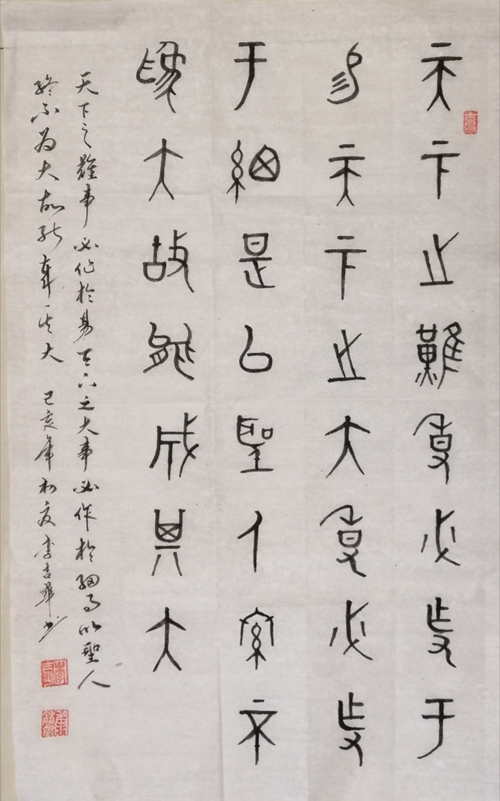 天下之難事必作于
易天下之大事必作
于細是以聖人終不
為大故能成其大
天下之難事必作於易天下之大事必作於細是以聖人
終不为大故能成其大 己亥年初夏李吉书